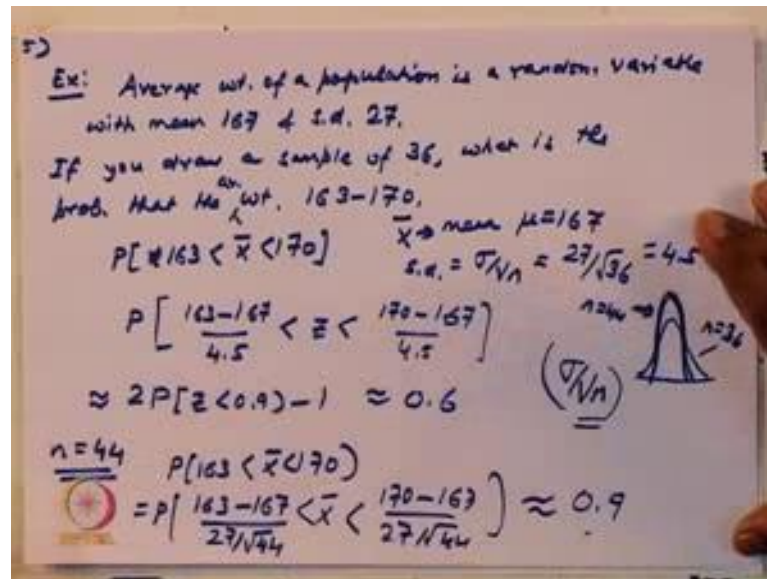 5)
Ex: Average wt. of a population is a random variable
with mean 167 & s.d. 27.
If you draw a sample of 36, what is the
prob. that the av. wt. 163-170.
P[163 < x̄ < 170]
x̄ → mean μ=167
s.d. = σ/√n = 27/√36 = 4.5
P[(163-167)/4.5 < z < (170-167)/4.5]
n=44 →
n=36
≈ 2P[z<0.9)-1 ≈ 0.6
(σ/√n)
n=44
P(163 < x̄ < 170)
= P[(163-167)/(27/√44) < x̄ < (170-167)/(27/√44)) ≈ 0.9